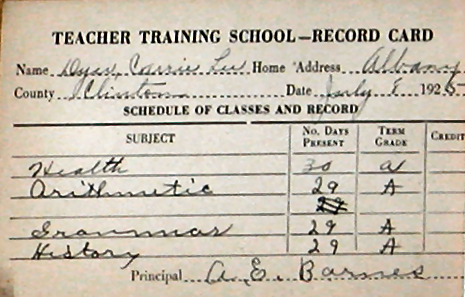 TEACHER TRAINING SCHOOL—RECORD CARD
Name Dyar, Carrie Lee Home Address Albany
County Clinton Date July 8 1925
SCHEDULE OF CLASSES AND RECORD
SUBJECT No. DAYS PRESENT TERM GRADE CREDIT
Health 30 a
Arithmetic 29 A
Grammar 29 A
History 29 A
Principal A. E. Barnes